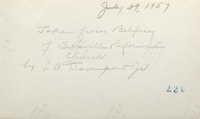 July 29, 1957
Taken from Belfry
of Reformed
Church
by L. A. Davenport Jr
227